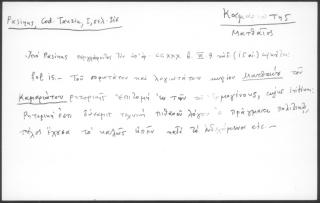 Pasinus, Cod. Taurin, I, σελ.
Καμαριώτης
Ματθαῖος
Ἰωσ. Pasinus περιγράφων τὸν ὑπ' ἀρ. CCXXX b. VI. 9 κώδ. (15 αἰ.)
φ. 15.— Τοῦ σοφωτάτου καὶ λογιωτάτου κυρίου Ματθαίου τοῦ
Καμαριώτου ῥητορικῆς ἐπιτομὴ ἐκ τῶν τοῦ Ἑρμογένους,
Ῥητορική ἐστι δύναμις τεχνικὴ πιθανοῦ λόγου ἐν πράγματι πολιτικῷ,
τέλος ἔχουσα τὸ καλῶς εἰπεῖν κατὰ τὸ ἐνδεχόμενον etc.—